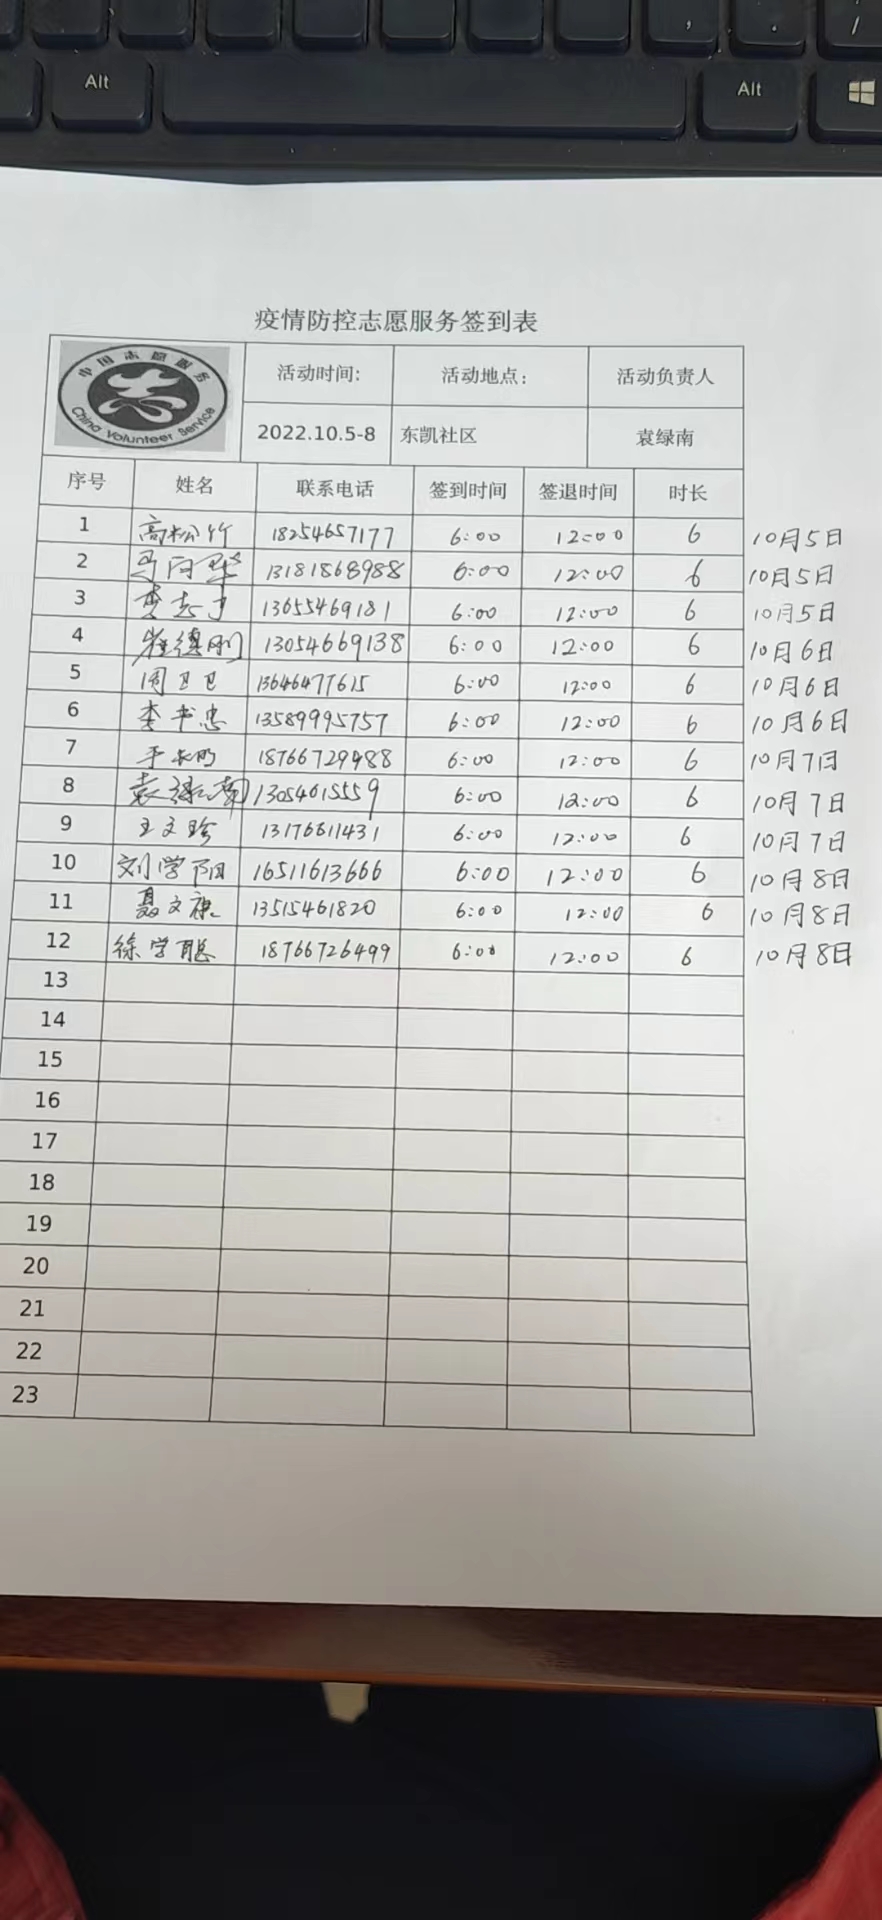 Alt
Alt
, . /
疫情防控志愿服务签到表
中国志愿服务
China Volunteer Service
活动时间: 活动地点: 活动负责人
2022.10.5-8 东凯社区 袁绿南
序号 姓名 联系电话 签到时间 签退时间 时长
1 高松竹 18254657177 6:00 12:00 6 10月5日
2 13181868988 6:00 12:00 6 10月5日
3 13655469181 6:00 12:00 6 10月5日
4 崔德刚 13054669138 6:00 12:00 6 10月6日
5 周卫卫 13646477615 6:00 12:00 6 10月6日
6 李书忠 13589995757 6:00 12:00 6 10月6日
7 18766729488 6:00 12:00 6 10月7日
8 袁绿南 13054615559 6:00 12:00 6 10月7日
9 王文珍 13176611431 6:00 12:00 6 10月7日
10 刘学阳 16511613666 6:00 12:00 6 10月8日
11 聂文康 13515461820 6:00 12:00 6 10月8日
12 徐学聪 18766726499 6:00 12:00 6 10月8日
13
14
15
16
17
18
19
20
21
22
23